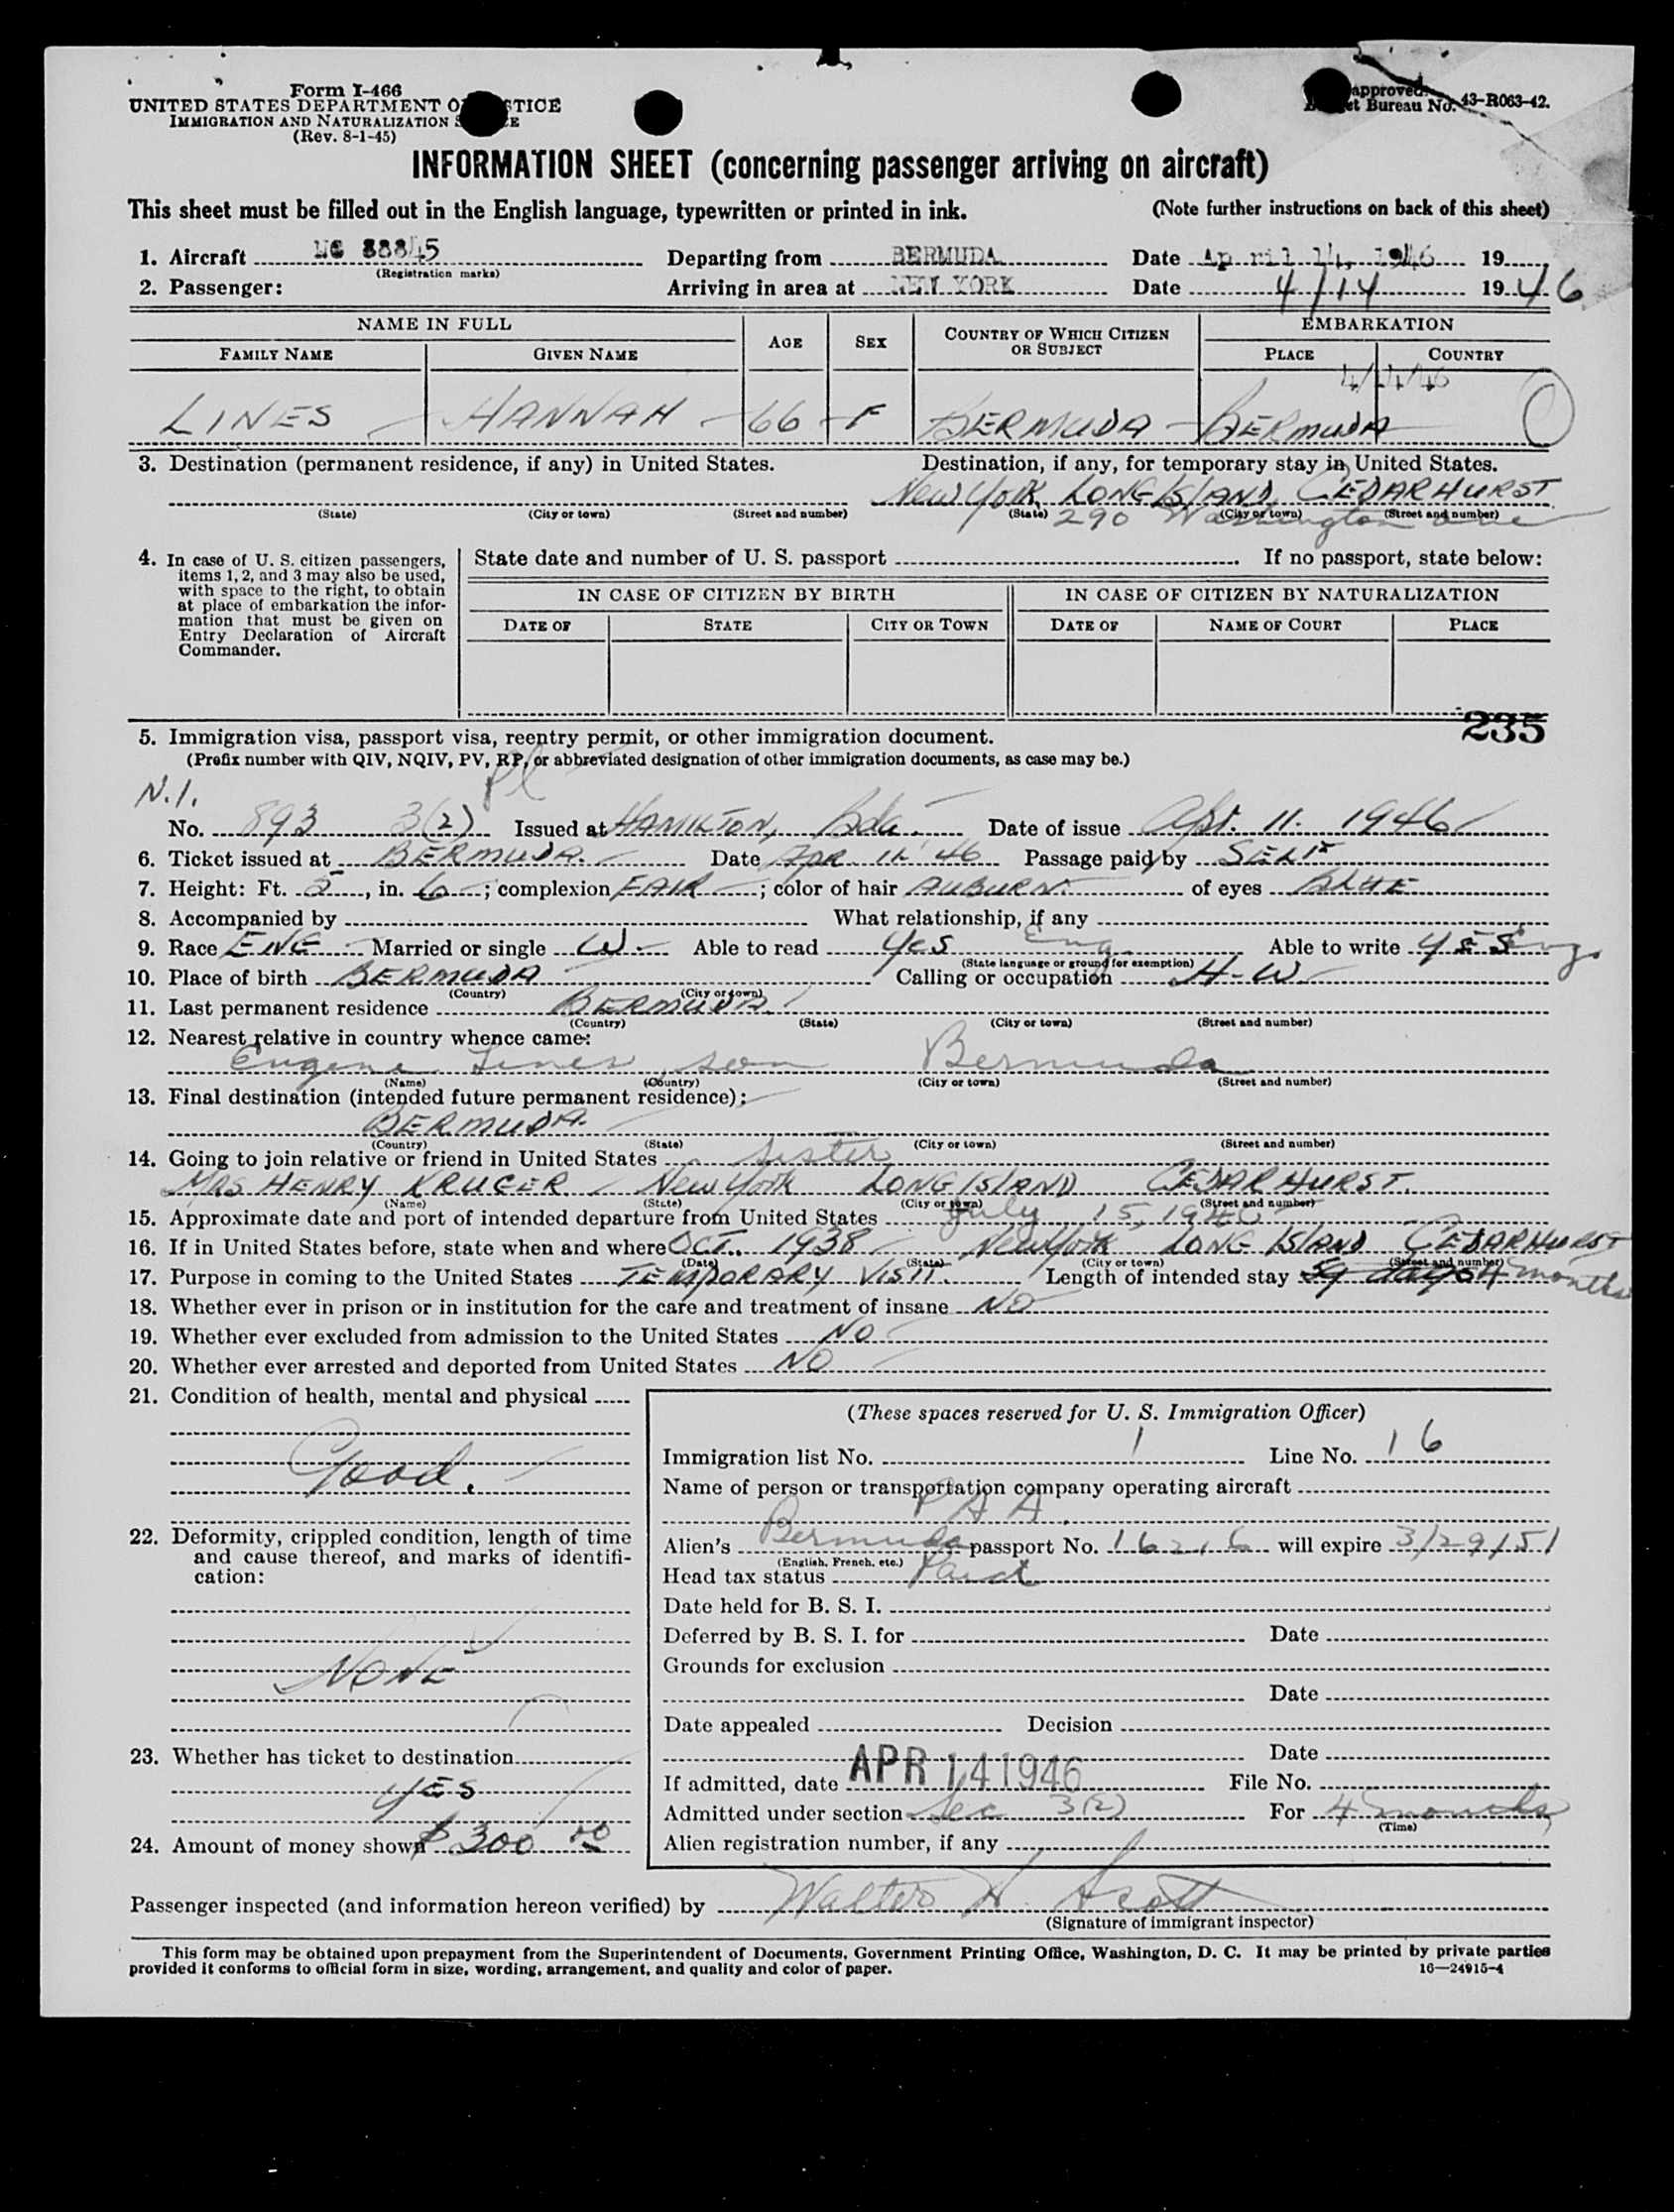 Form I-466
UNITED STATES DEPARTMENT O TICE
IMMIGRATION AND NATURALIZATION S E
(Rev. 8-1-45)
approved.
et Bureau No. 43-R063-42.
INFORMATION SHEET (concerning passenger arriving on aircraft)
This sheet must be filled out in the English language, typewritten or printed in ink. (Note further instructions on back of this sheet)
1. Aircraft 88845 Departing from BERMUDA Date April 14, 1946 19
(Registration marks)
2. Passenger: Arriving in area at NEW YORK Date 4/14 19 46
NAME IN FULL AGE SEX COUNTRY OF WHICH CITIZEN OR SUBJECT EMBARKATION
FAMILY NAME GIVEN NAME PLACE COUNTRY
4/14/46
LINES HANNAH 66 F BERMUDA BERMUDA
3. Destination (permanent residence, if any) in United States. Destination, if any, for temporary stay in United States.
New York LONG ISLAND CEDARHURST
(State) (City or town) (Street and number) (State) (City or town) (Street and number)
290 Washington ave
4. In case of U. S. citizen passengers, items 1, 2, and 3 may also be used, with space to the right, to obtain at place of embarkation the information that must be given on Entry Declaration of Aircraft Commander.
State date and number of U. S. passport If no passport, state below:
IN CASE OF CITIZEN BY BIRTH IN CASE OF CITIZEN BY NATURALIZATION
DATE OF STATE CITY OR TOWN DATE OF NAME OF COURT PLACE
235
5. Immigration visa, passport visa, reentry permit, or other immigration document.
(Prefix number with QIV, NQIV, PV, RP, or abbreviated designation of other immigration documents, as case may be.)
N.I.
No. 893 3(2) Issued at HAMILTON, Bda. Date of issue Apr. 11. 1946
6. Ticket issued at BERMUDA. Date APR 11 46 Passage paid by SELF
7. Height: Ft. 5, in. 6; complexion FAIR; color of hair AUBURN of eyes BLUE
8. Accompanied by What relationship, if any
9. Race ENG Married or single W. Able to read Yes Eng. Able to write YES Eng.
(State language or ground for exemption)
10. Place of birth BERMUDA Calling or occupation H-W.
(Country) (City or town)
11. Last permanent residence BERMUDA.
(Country) (State) (City or town) (Street and number)
12. Nearest relative in country whence came:
Eugene Lines son Bermuda
(Name) (Country) (City or town) (Street and number)
13. Final destination (intended future permanent residence):
BERMUDA.
(Country) (State) (City or town) (Street and number)
14. Going to join relative or friend in United States sister
MRS HENRY KRUGER New York LONG ISLAND CEDARHURST.
(Name) (State) (City or town) (Street and number)
15. Approximate date and port of intended departure from United States July 15, 1946
16. If in United States before, state when and where OCT. 1938 New York LONG ISLAND CEDARHURST
(Date) (State) (City or town) (Street and number)
17. Purpose in coming to the United States TEMPORARY VISIT. Length of intended stay days 4 months
18. Whether ever in prison or in institution for the care and treatment of insane NO
19. Whether ever excluded from admission to the United States NO
20. Whether ever arrested and deported from United States NO
21. Condition of health, mental and physical
Good.
22. Deformity, crippled condition, length of time and cause thereof, and marks of identification:
NONE
23. Whether has ticket to destination
YES
24. Amount of money shown $300 00
(These spaces reserved for U. S. Immigration Officer)
Immigration list No. 1 Line No. 16
Name of person or transportation company operating aircraft
P A A.
Alien's Bermuda passport No. 16216 will expire 3/29/51
(English, French, etc.)
Head tax status Paid
Date held for B. S. I.
Deferred by B. S. I. for Date
Grounds for exclusion
Date
Date appealed Decision
Date
If admitted, date APR 14 1946 File No.
Admitted under section Sec 3(2) For 4 months
(Time)
Alien registration number, if any
Passenger inspected (and information hereon verified) by Walter H. Scott
(Signature of immigrant inspector)
This form may be obtained upon prepayment from the Superintendent of Documents, Government Printing Office, Washington, D. C. It may be printed by private parties
provided it conforms to official form in size, wording, arrangement, and quality and color of paper. 16—24915-4